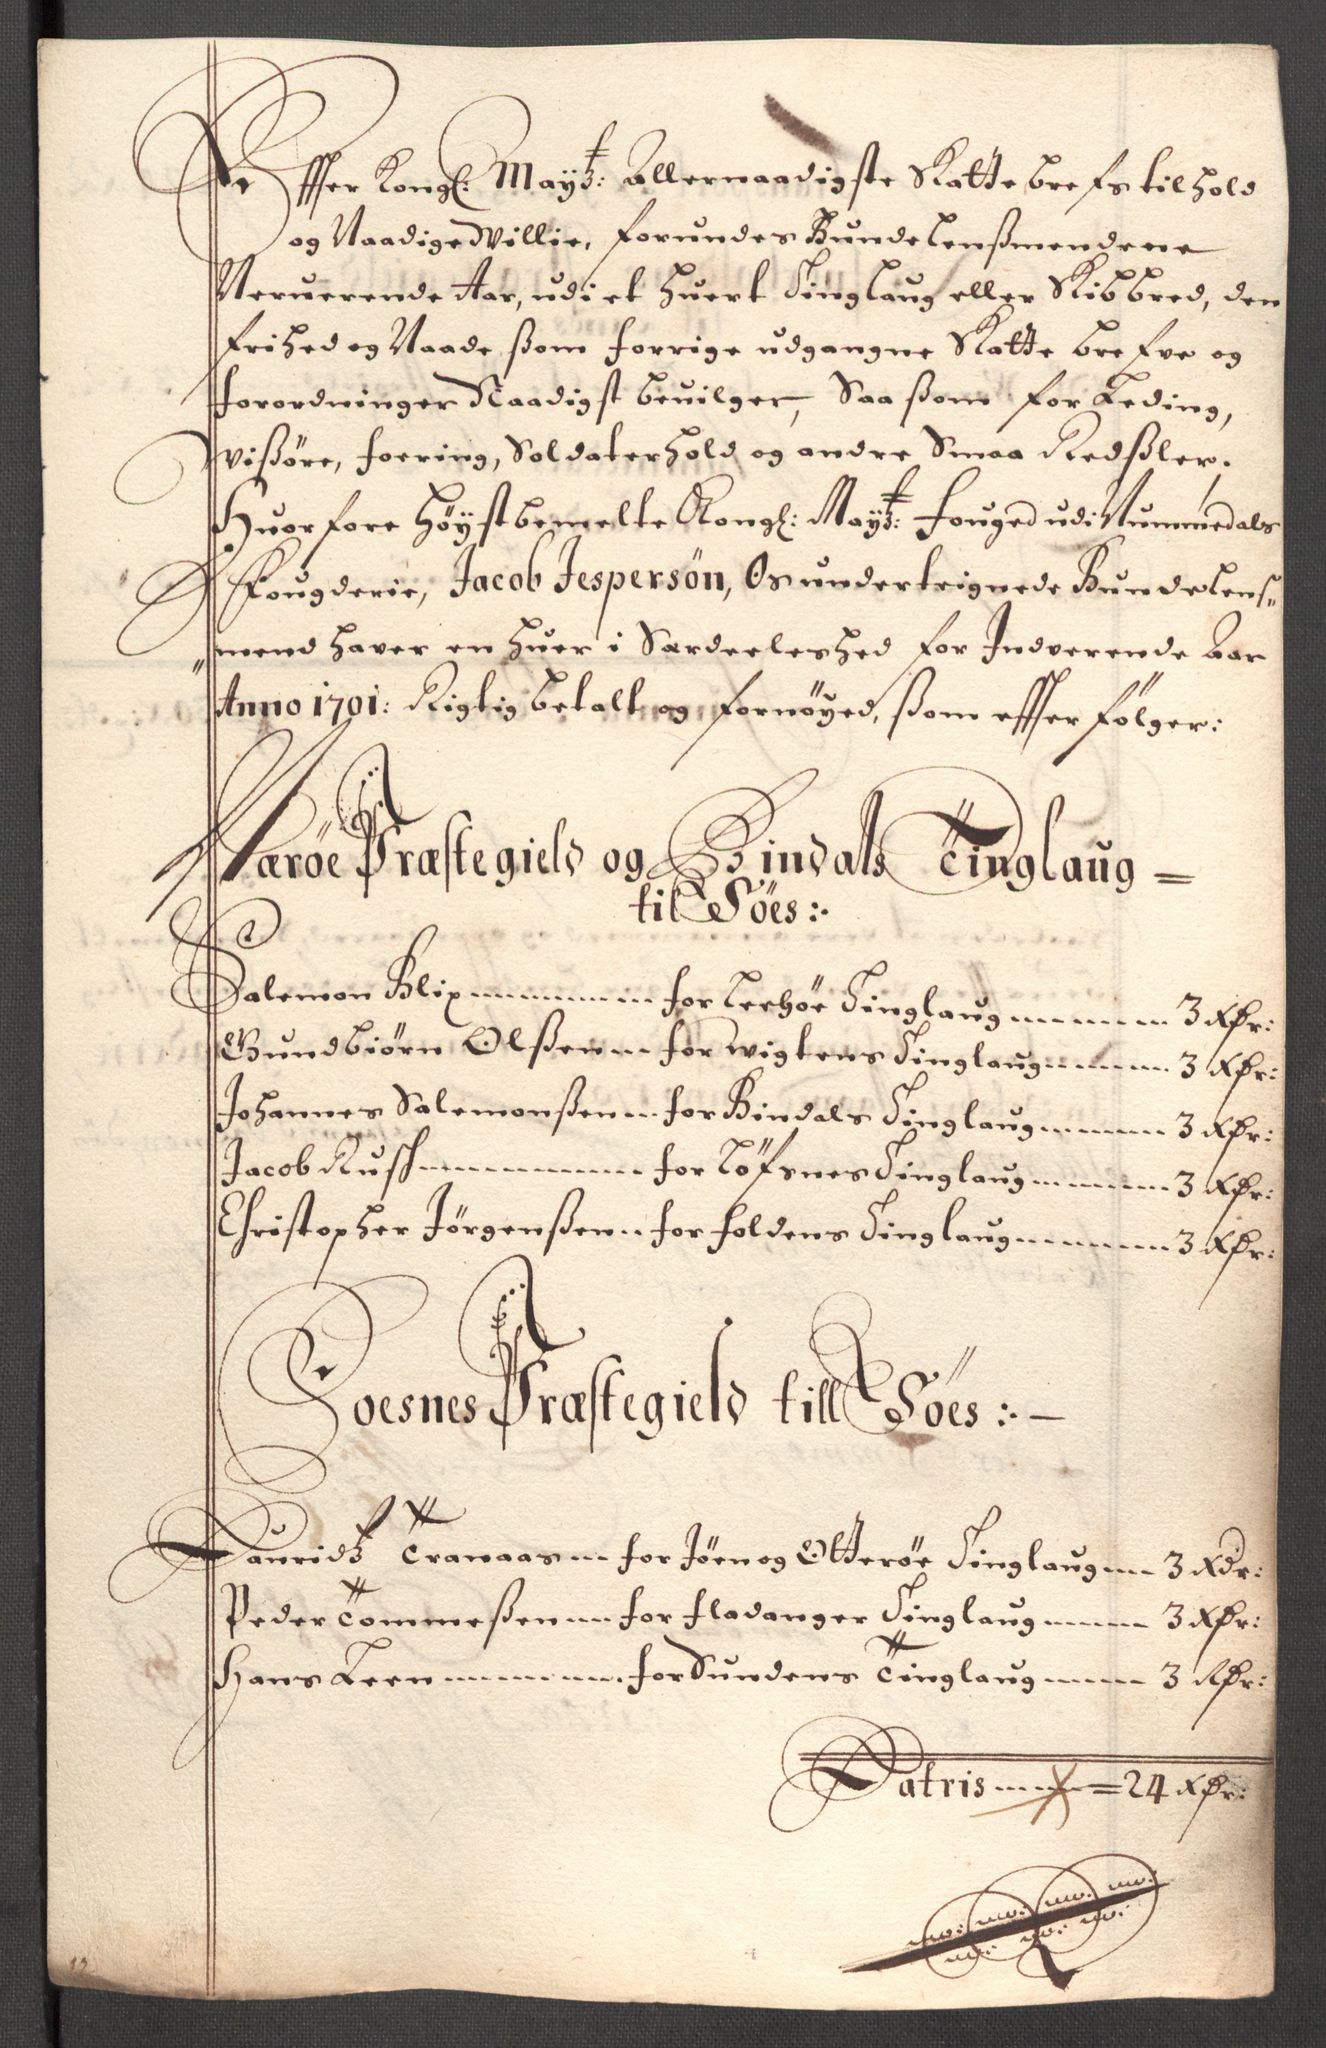 Effter Kongl: Maytz: Allernaadigste Skatte brefs tilhold
og Naadige Willie, forundes Bunde lensmendene
Neruerende Aar, udi et huert Tinglaug eller Skibbred, den
frihed og Naade ßom forrige udgangne Skatte brefve og
forordninger Naadigst beuilger, Saa ßom for Leding,
Wißøre, foering, Soldaterhold og andre Smaa Redßler.
Huorfore høystbemelte Kongl: Maytz: fouged udi Nummedals
Fougderie, Jacob Jespersøn, Os underteignede Bundelens-
mend haver en huer i Særdeeleshed for Indverende Aar
Anno 1701: Rigtig betalt og fornøyed, ßom effter følger:
Nærøe Præstegield og Bindals Tinglaug =
til Søes :
Salemon Blix for Leehøe Tinglaug 3 Rdr:
Gundbiørn Olßen for Wigtens Tinglaug 3 Rdr:
Johannes Salemonßen for Bindals Tinglaug 3 Rdr:
Jacob Rusk for Løfsnes Tinglaug 3 Rdr:
Christopher Jørgenßen for foldens Tinglaug 3 Rdr:
Foesnes Præstegield till Søes : -
Lauridz Tranaas for Jøen og Otterøe Tinglaug 3 Rdr:
Peder Tommeßen for fladanger Tinglaug 3 Rdr:
Hans Leen for Sundens Tinglaug 3 Rdr:
Latris = 24 Rdr: